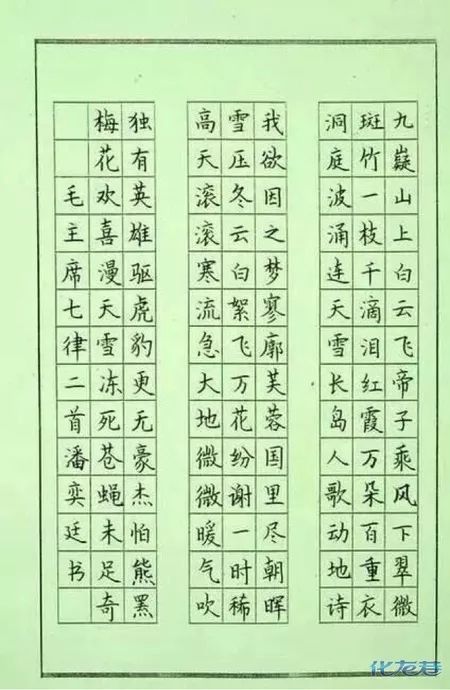 九嶷山上白云飞帝子乘风下翠微
斑竹一枝千滴泪红霞万朵百重衣
洞庭波涌连天雪长岛人歌动地诗
我欲因之梦寥廓芙蓉国里尽朝晖
雪压冬云白絮飞万花纷谢一时稀
高天滚滚寒流急大地微微暖气吹
独有英雄驱虎豹更无豪杰怕熊罴
梅花欢喜漫天雪冻死苍蝇未足奇
毛主席七律二首潘奕廷书
化龙巷